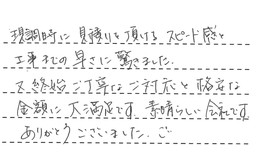 現調時に見積りを頂けるスピード感と
工事までの早さに驚きました。
又、終始ご丁寧なご対応と格安な
金額に大満足です。素晴らしい会社です
ありがとうございました。